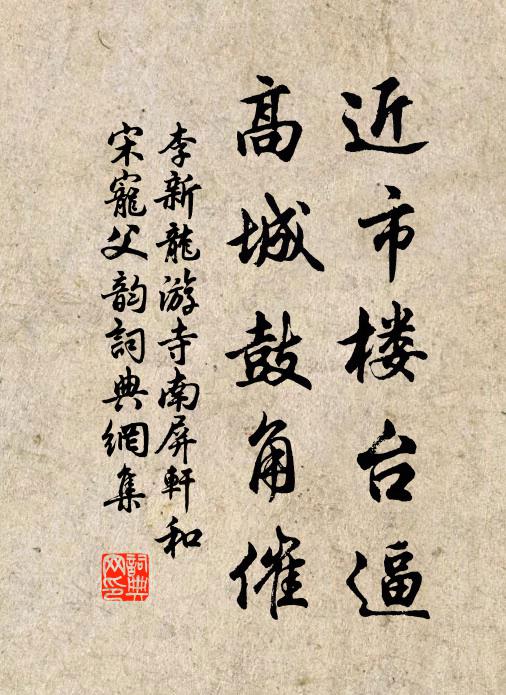 近市楼台逼
高城鼓角催
李新龍游寺南屏軒和
宋寵父韵詞典網集
詞典
网印